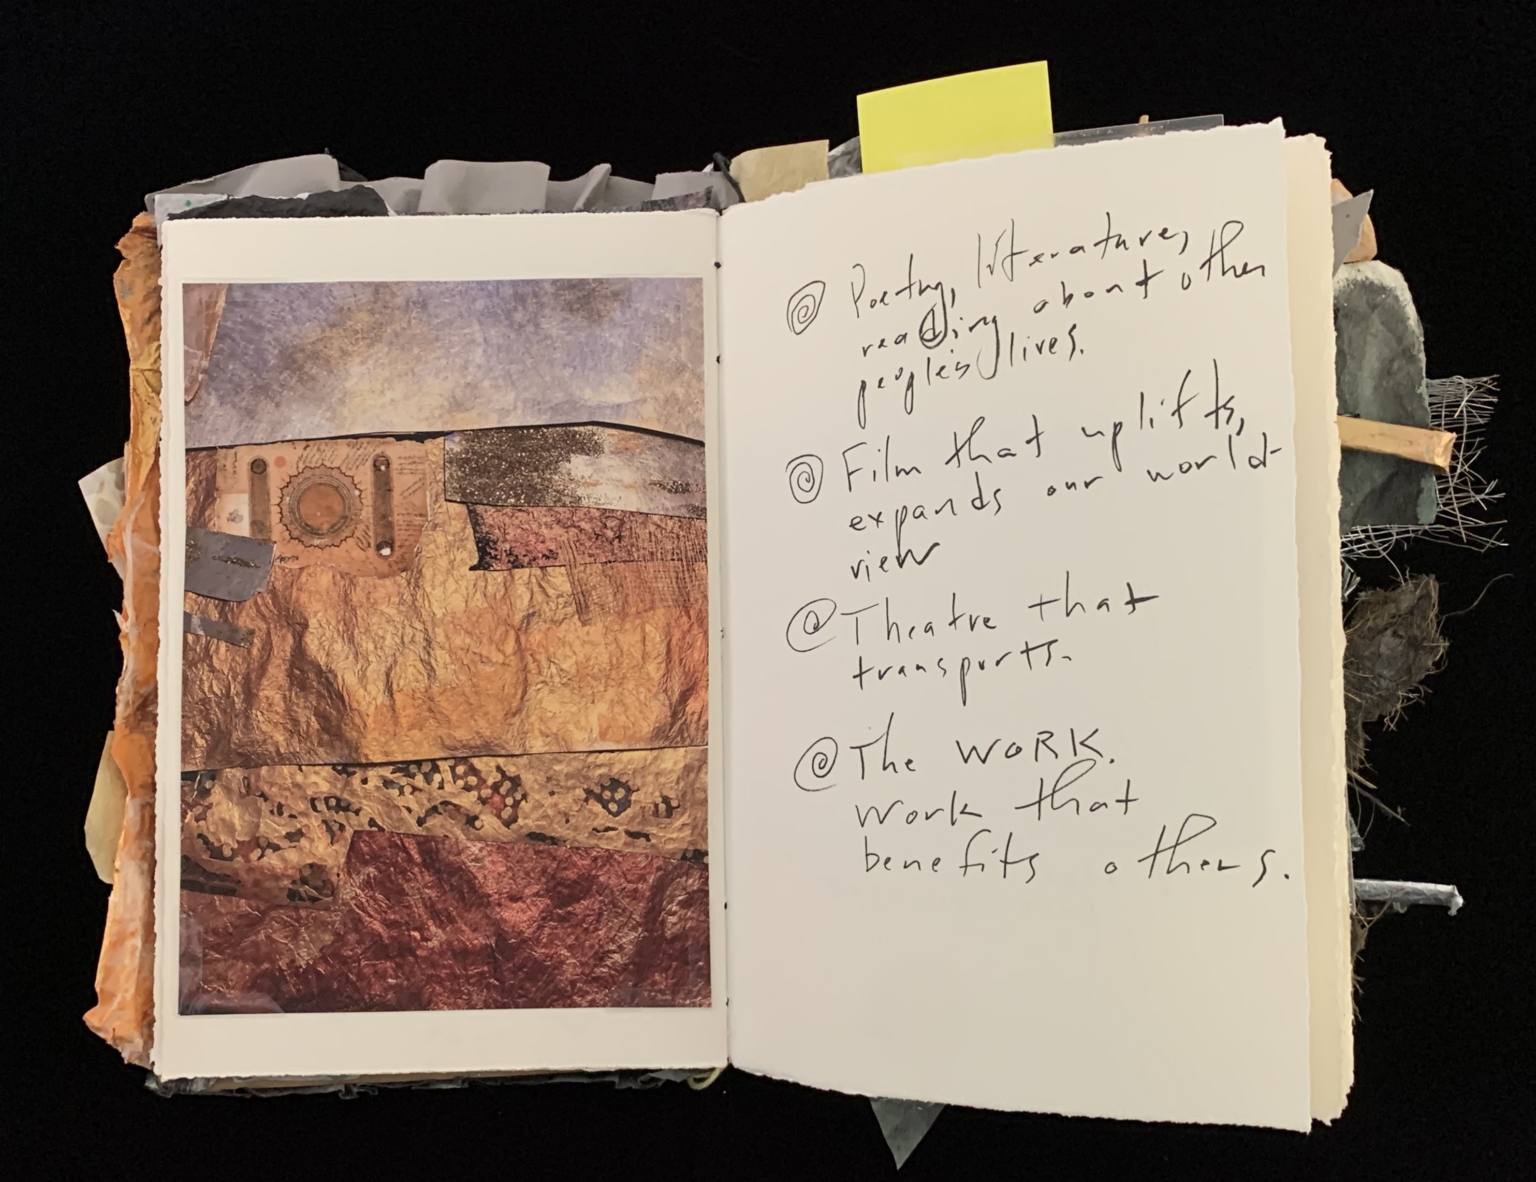 Poetry, literature,
reading about other
people's lives.
Film that uplifts,
expands our world-
view
Theatre that
transports.
The WORK.
Work that
benefits others.